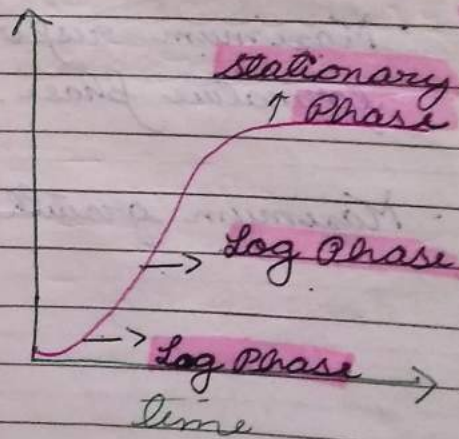 Stationary
Phase
Log Phase
Lag Phase
time